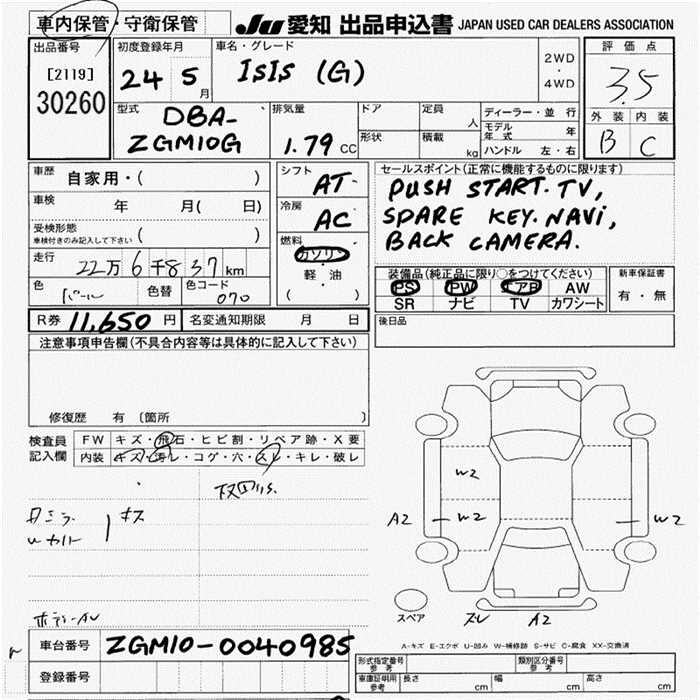 車内保管・守衛保管
JU 愛知 出品申込書 JAPAN USED CAR DEALERS ASSOCIATION
出品番号 [2119] 30260
初度登録年月 24 5月
車名・グレード ISIS (G)
2WD・4WD
評価点 3.5
外装 B 内装 C
型式 DBA-ZGM10G
排気量 1.79 CC
ドア 定員 人
形状 積載 kg
ディーラー・並行
モデル年式 年
ハンドル 左・右
車歴 自家用・( )
車検 年 月( 日)
受検形態 ( )
車検付きのみ記入して下さい
走行 22万6千837km
色 パール 色替 色コード 070
シフト AT
冷房 AC
燃料 ガソリン・軽・油 ( )
セールスポイント(正常に機能するものに限ります)
PUSH START. TV,
SPARE KEY. NAVI,
BACK CAMERA.
装備品(純正品に限り○をつけてください)
PS PW エアB AW
SR ナビ TV カワシート
新車保証書 有・無
R券 11,650円 名変通知期限 月 日
後日品
注意事項申告欄(不具合内容等は具体的に記入して下さい)
修復歴 有 〔箇所 〕
検査員記入欄
FW キズ・飛石・ヒビ割・リペア跡・X要
内装 キズ・汚レ・コゲ・穴・スレ・キレ・破レ
キズ
W2
A2 W2 W2
スペア A2
A-キズ E-エクボ U-凹み W-補修跡 S-サビ C-腐食 XX-交換済
車台番号 ZGM10-0040985
登録番号
形式指定番号 参考 類別区分番号 参考
車庫証明用 参考 長さ cm 幅 cm 高さ cm